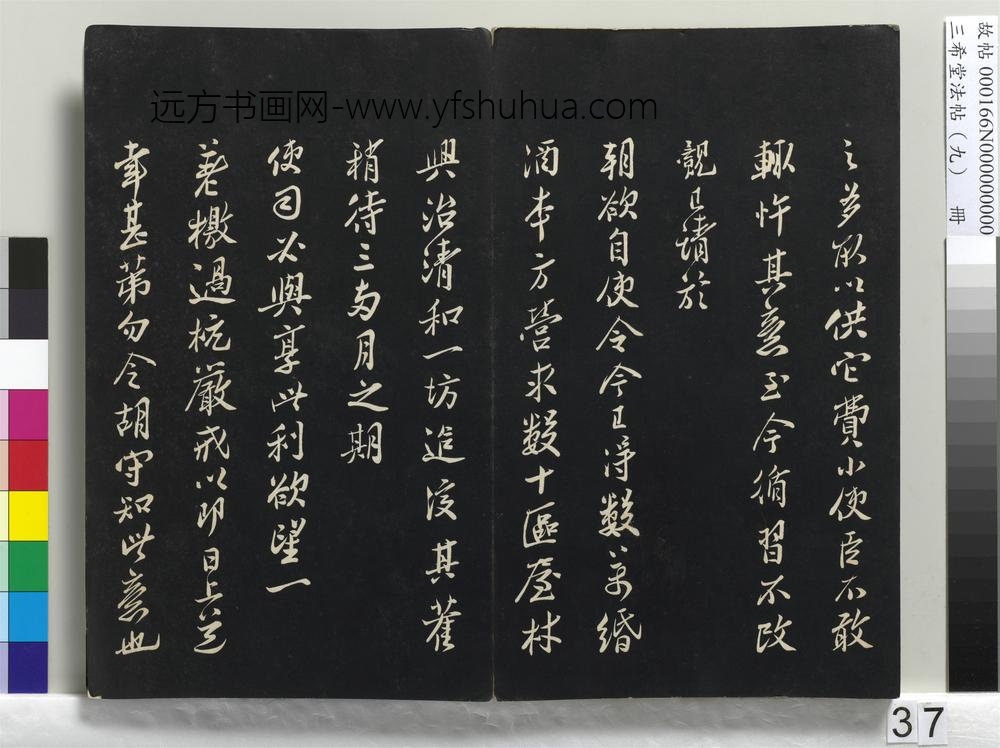 远方书画网-www.yfshuhua.com
之多所以供它費小使臣不敢
輙忤其意至今循習不改
覬已請於
朝欲自使令今已得數萬緡
酒本方營求數十區屋材
興治清和一坊造後其舊
稍待三两月之期
使司必與享此利欲望一
差檄過杭嚴戒以即日上道
幸甚第勿令胡守知此意也
故帖 000166N000000000
三希堂法帖（九） 冊
37